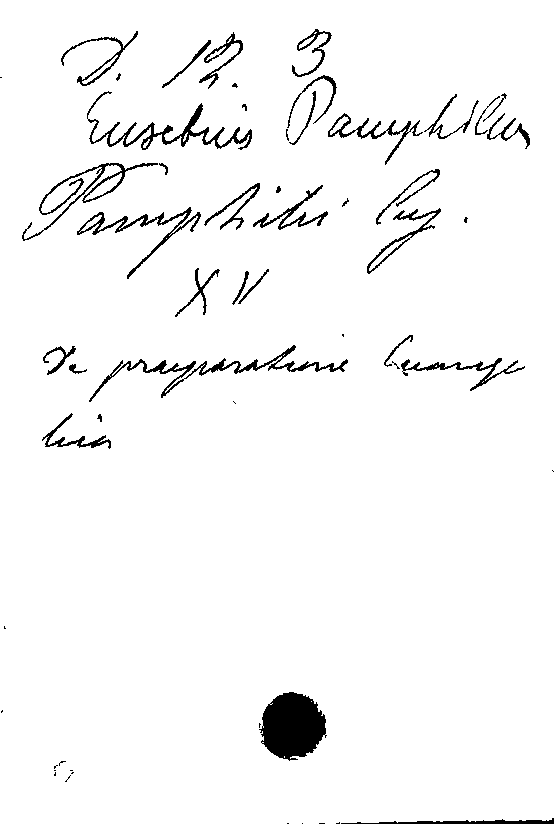 D. 12. 3
Eusebius Pamphilus
Pamphili
XV
De praeparatione Evange
lica